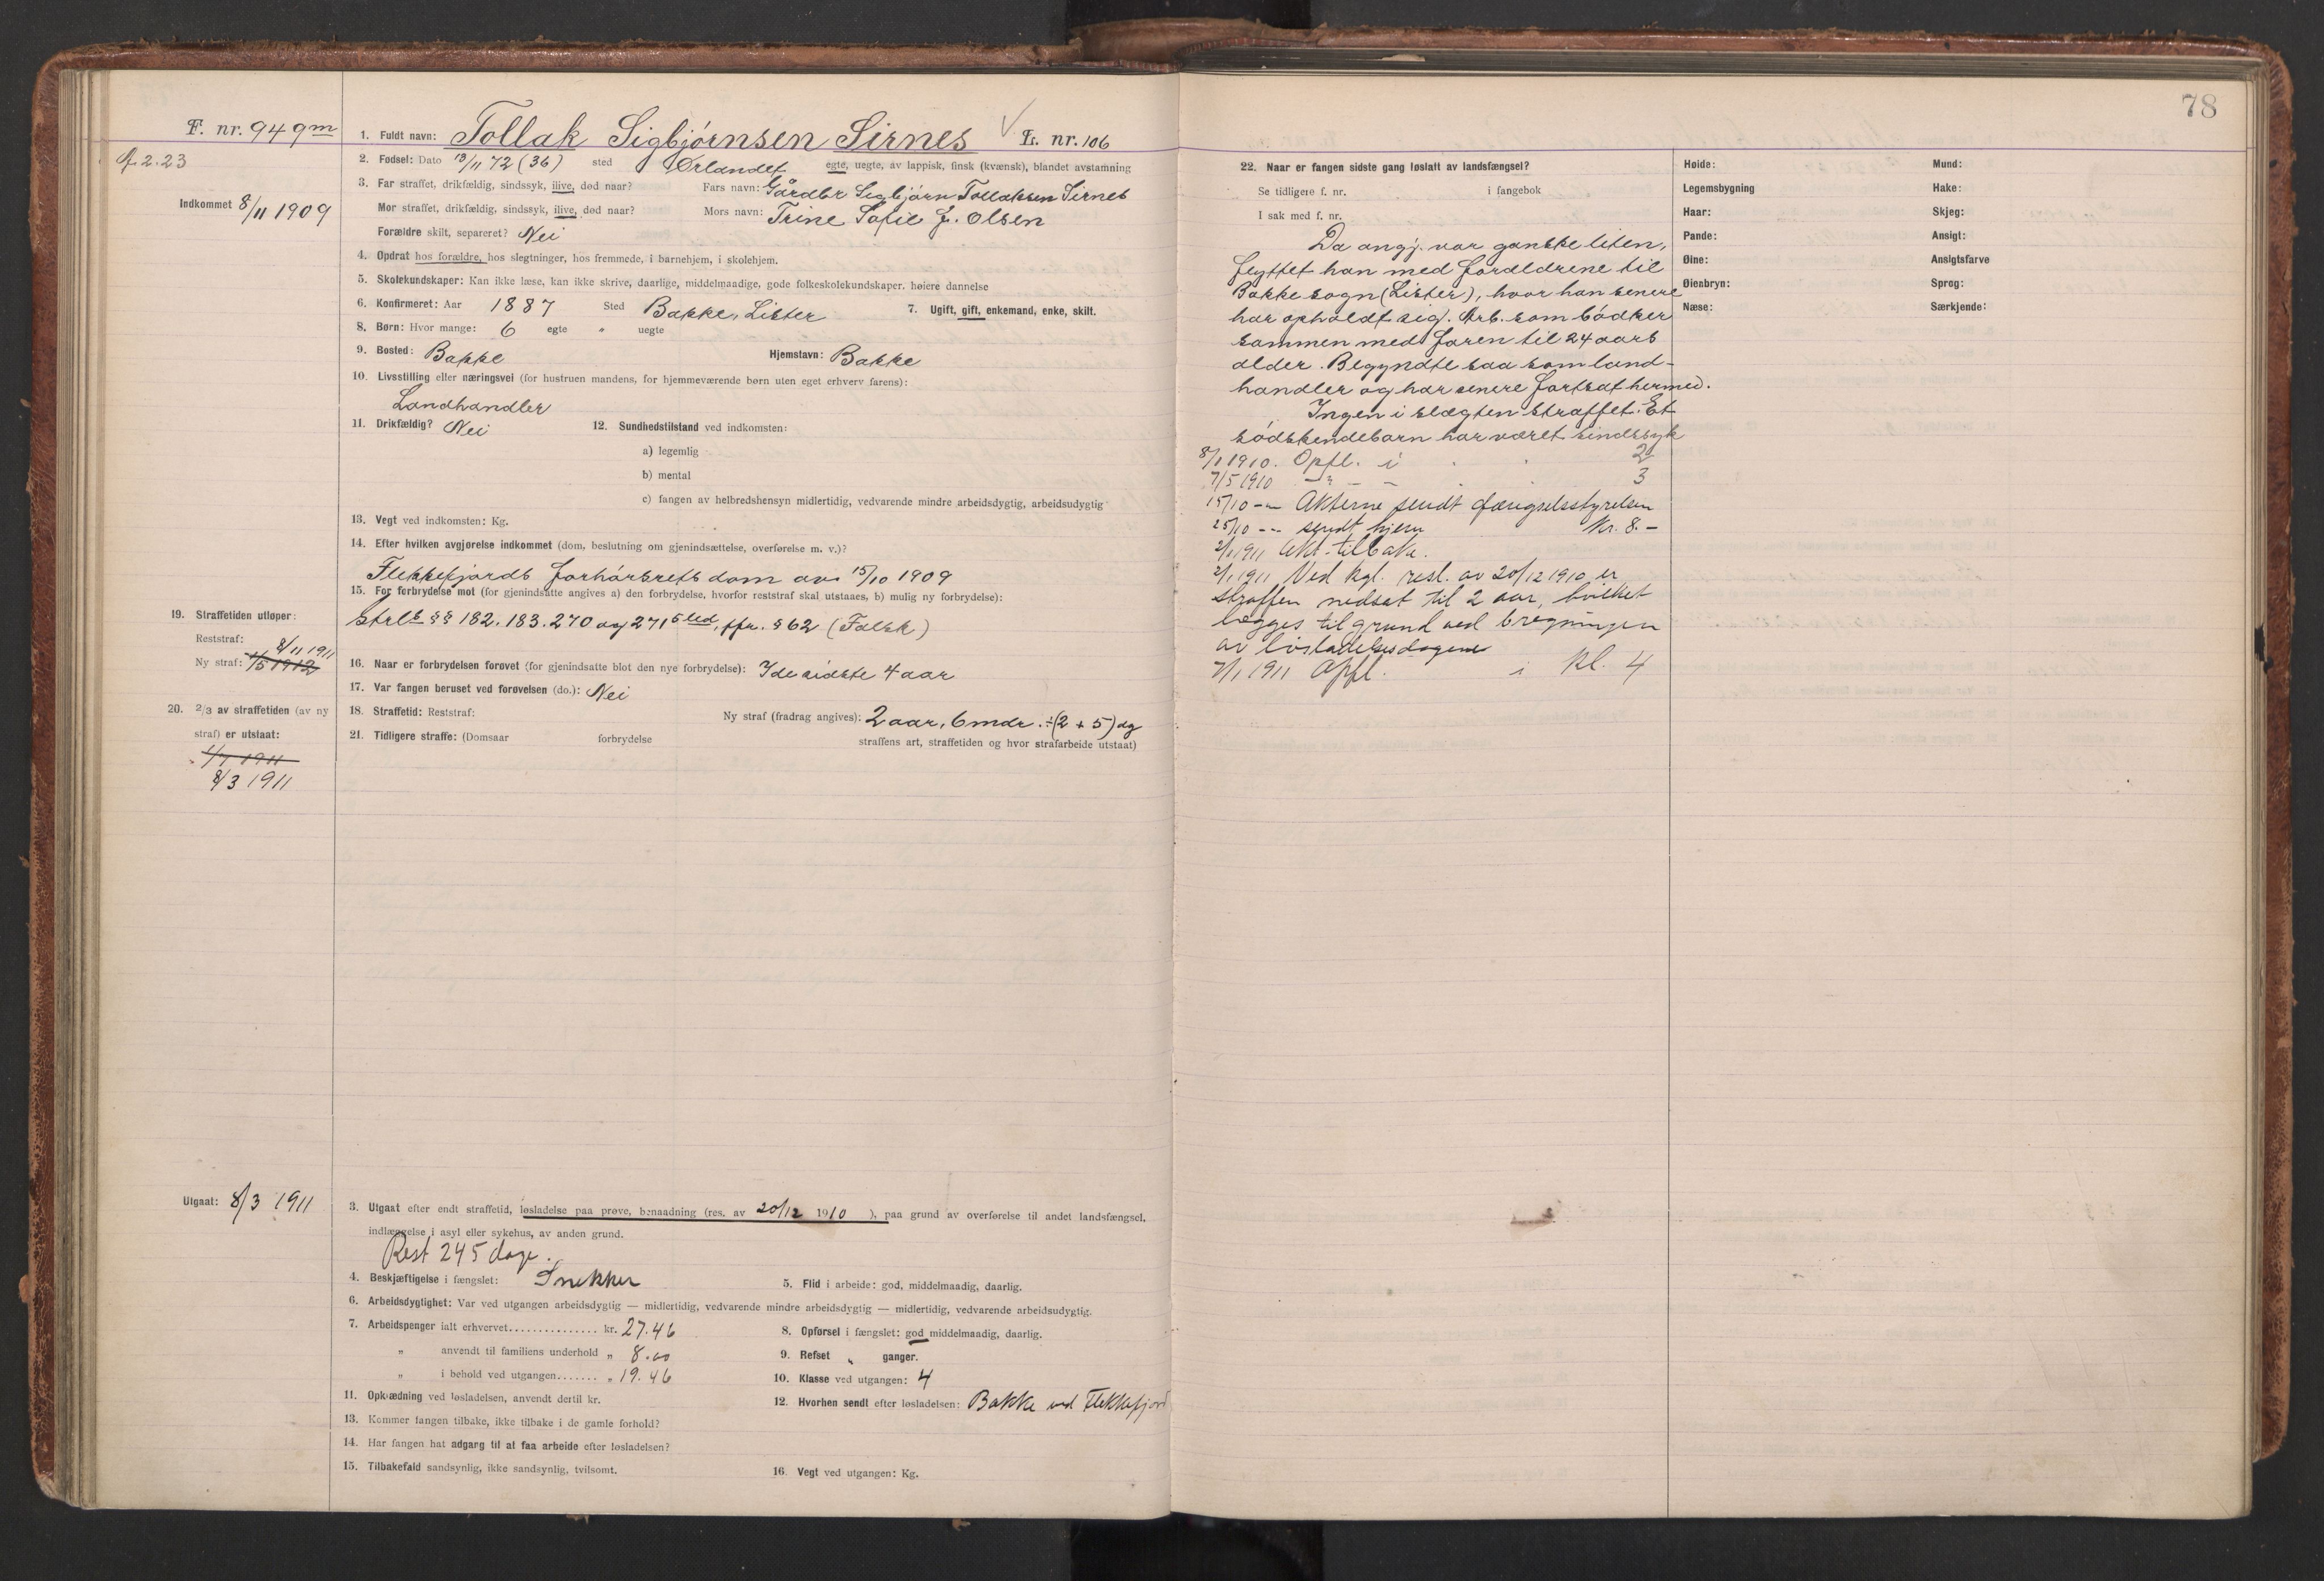 78
F. nr. 949 m
1. Fuldt navn: Tollak Sigbjørnsen Sirnes L. nr. 106
2. Fødsel: Dato 13/11 72 (36) sted Ørlandet egte, uegte, av lappisk, finsk (kvænsk), blandet avstamning
3. Far straffet, drikfældig, sindssyk, ilive, død naar? Fars navn: Gårdbr Sigbjørn Tollaksen Sirnes
Indkommet 8/11 1909
Mor straffet, drikfældig, sindssyk, ilive, død naar? Mors navn: Trine Sofie f. Olsen
Forældre skilt, separeret? Nei
4. Opdrat hos forældre, hos slegtninger, hos fremmede, i barnehjem, i skolehjem.
5. Skolekundskaper: Kan ikke læse, kan ikke skrive, daarlige, middelmaadige, gode folkeskolekundskaper. høiere dannelse
6. Konfirmeret: Aar 1887 Sted Bakke, Lister 7. Ugift, gift, enkemand, enke, skilt.
8. Børn: Hvor mange: 6 egte " uegte
9. Bosted: Bakke Hjemstavn: Bakke
10. Livsstilling eller næringsvei (for hustruen mandens, for hjemmeværende børn uten eget erhverv farens):
Landhandler
11. Drikfældig? Nei 12. Sundhedstilstand ved indkomsten:
a) legemlig
b) mental
c) fangen av helbredshensyn midlertidig, vedvarende mindre arbeidsdygtig, arbeidsudygtig
13. Vegt ved indkomsten: Kg.
14. Efter hvilken avgjørelse indkommet (dom, beslutning om gjenindsættelse, overførelse m. v.)?
Flekkefjords forhørsrets dom av 15/10 1909
15. For forbrydelse mot (for gjenindsatte angives a) den forbrydelse, hvorfor reststraf skal utstaaes, b) mulig ny forbrydelse):
Strl.s §§ 182. 183. 270 og 271 5 led, jfr. § 62 (Falsk)
19. Straffetiden utløper:
Reststraf: 8/11 1911
Ny straf: 1/5 1912
16. Naar er forbrydelsen forøvet (for gjenindsatte blot den nye forbrydelse): I de sidste 4 aar
17. Var fangen beruset ved forøvelsen (do.): Nei
18. Straffetid: Reststraf: Ny straf (fradrag angives): 2 aar, 6 mdr. ÷ (2 + 5) dg
20. 2/3 av straffetiden (av ny
straf) er utstaat:
8/3 1911
21. Tidligere straffe: (Domsaar forbrydelse straffens art, straffetiden og hvor strafarbeide utstaat)
Utgaat: 8/3 1911
3. Utgaat efter endt straffetid, løsladelse paa prøve, benaadning (res. av 20/12 1910 ), paa grund av overførelse til andet landsfængsel,
indlæggelse i asyl eller sykehus, av anden grund.
Rest 245 dage.
4. Beskjæftigelse i fængslet: Snekker 5. Flid i arbeide: god, middelmaadig, daarlig.
6. Arbeidsdygtighet: Var ved utgangen arbeidsdygtig — midlertidig, vedvarende mindre arbeidsdygtig — midlertidig, vedvarende arbeidsudygtig.
7. Arbeidspenger ialt erhvervet............... kr. 27.46 8. Opførsel i fængslet: god middelmaadig, daarlig.
" anvendt til familiens underhold " 8.00 9. Refset " ganger.
" i behold ved utgangen....... " 19.46 10. Klasse ved utgangen: 4
11. Opklædning ved løsladelsen, anvendt dertil kr. 12. Hvorhen sendt efter løsladelsen: Bakke ved Flekkefjord
13. Kommer fangen tilbake, ikke tilbake i de gamle forhold?
14. Har fangen hat adgang til at faa arbeide efter løsladelsen?
15. Tilbakefald sandsynlig, ikke sandsynlig, tvilsomt. 16. Vegt ved utgangen: Kg.
22. Naar er fangen sidste gang løslatt av landsfængsel?
Se tidligere f. nr. i fangebok
I sak med f. nr.
Da angj. var ganske liten,
flyttet han med forældrene til
Bakke sogn (Lister), hvor han senere
har opholdt sig. Arb. som bødker
sammen med faren til 24 aars
alder. Begyndte saa som land-
handler og har senere fortsat hermed.
Ingen i slægten straffet. Et
södskendebarn har været sindssyk
8/1 1910. Opfl. i 2
7/5 1910 - " - - 3
15/10 - Akterne sendt fængselsstyrelsen
25/10 - - sendt hjem Kr. 8. -
2/1 1911 Akt. tilbake.
2/1 1911 Ved kgl. resl. av 20/12 1910 er
straffen nedsat til 2 aar, hvilket
lægges til grund ved bregningen
av løsladelsesdagene
7/1 1911 Opfl. i kl. 4
Høide: Mund:
Legemsbygning Hake:
Haar: Skjeg:
Pande: Ansigt:
Øine: Ansigtsfarve
Øienbryn: Sprog:
Næse: Særkjende: